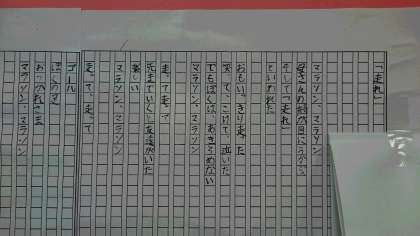 「走れ」
マラソン、マラソン
母さんの顔が目にうかぶ
そして「走れ」
といわれた
おもいっきり走った
笑って、こけて、泣いた
でもぼくは、あきらめない
マラソン、マラソン
走って走って
先まていくと友達がいた
楽しい
マラソン、マラソン
走って、走って
ゴール
ぼくのき
おつかれさま
マラソン、マラソン